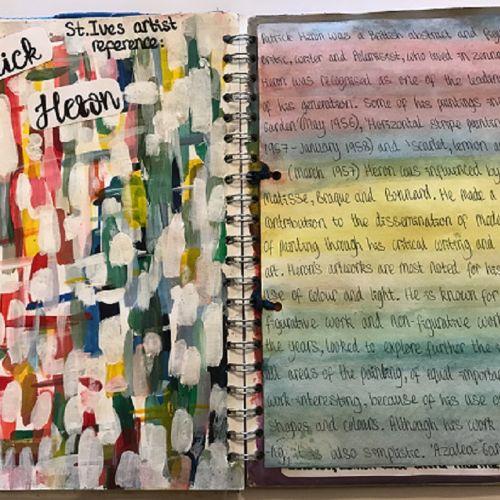 St.Ives artist
reference:
ick
Heron
Patrick Heron was a British abstract and
critic, writer and Polemicist, who lived in
Heron was recognised as one of the
of his generation. Some of his paintings
Garden (May 1956), 'Horizontal stripe
1957 - January 1958) and 'Scarlet, Lemon
(March 1957) Heron was influenced by
Matisse, Braque and Bonnard. He made
contribution to the dissemination of
of painting through his critical writing and
art. Heron's artworks are most noted for his
use of colour and light. He is known for
figurative work and non-figurative work
the years, looked to explore further the
all areas of the painting, of equal
work interesting, because of his use
shapes and colours. Although his work
it is also simplistic. 'Azalea Gar